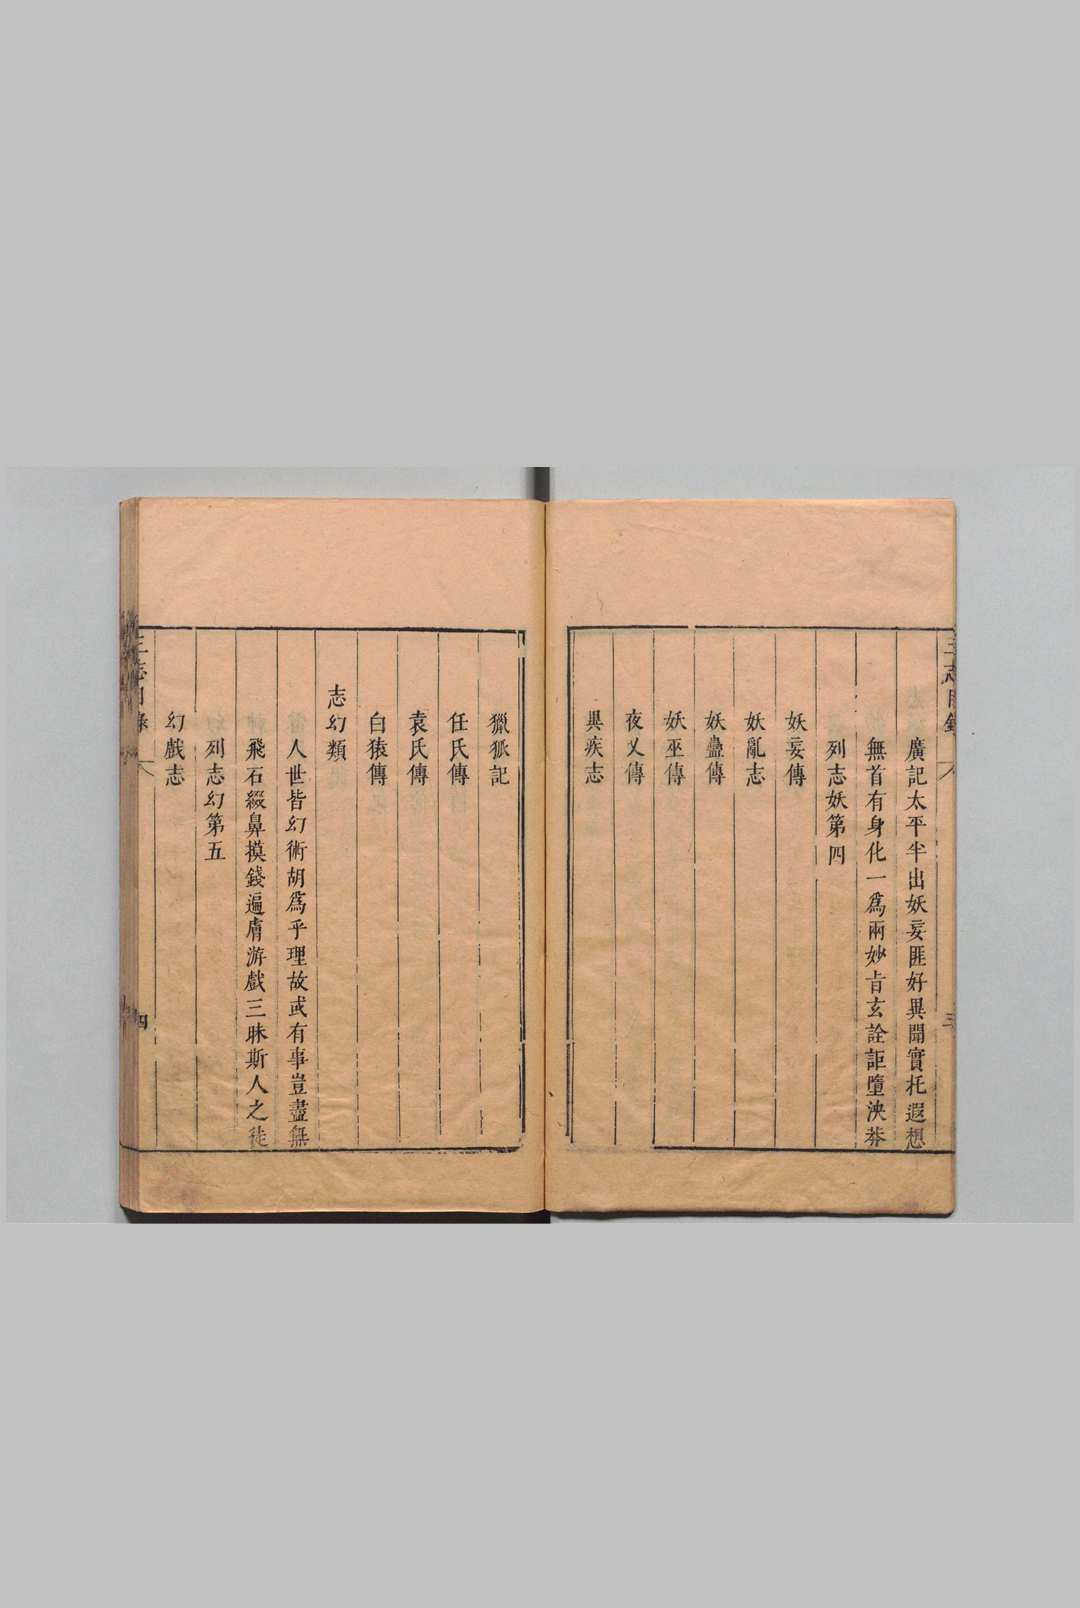 廣記太平半出妖妄匪好異聞實托遐想
無首有身化一爲兩妙㫖玄詮詎墮泱莽
列志妖第四
妖妄傳
妖亂志
妖蠱傳
妖巫傳
夜乂傳
異疾志
獵狐記
任氏傳
袁氏傳
白猿傳
志幻類
人世皆幻術胡爲乎理故或有事豈盡無
飛石綴鼻摸錢遍膚游戲三昧斯人之徒
列志幻第五
幻戲志
三志目錄
四